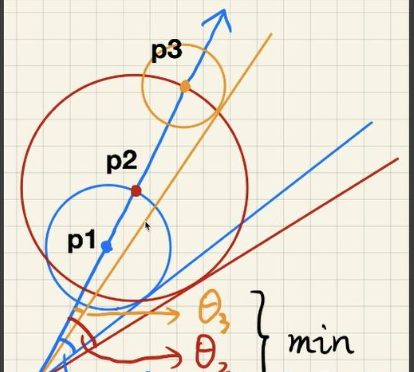 p3
p2
p1
θ₃
θ₂
min